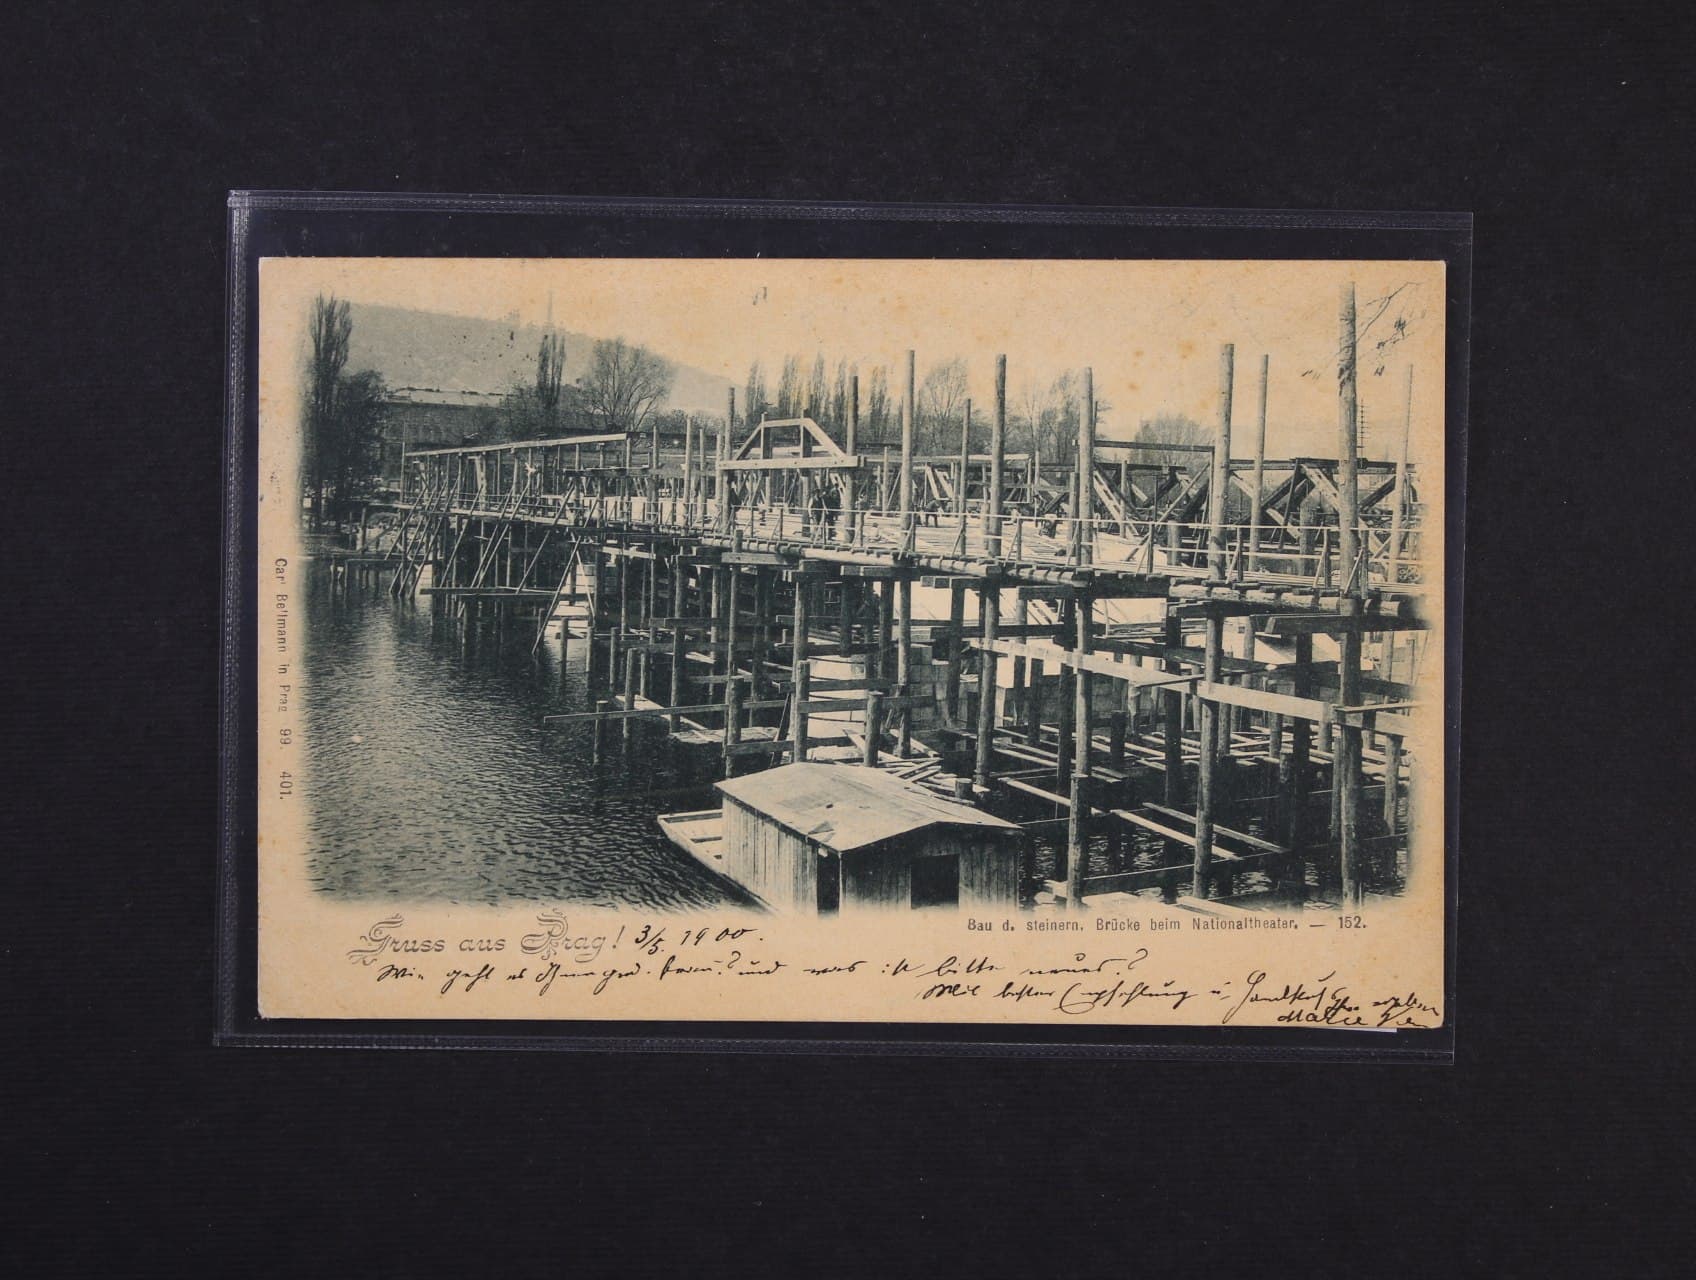 Car' Bellmann in Prag 99. 401.
Bau d. steinern. Brücke beim Nationaltheater. — 152.
Gruss aus Prag! 3/5. 1900.
Wie geht es Ihnen und was ist bitte neues?
Mit bester Empfehlung u. Handkuß
Marie